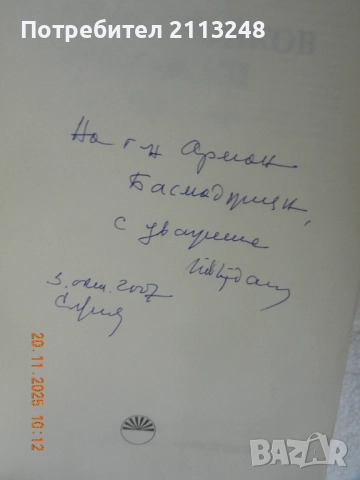 Потребител 2113248
На г-н Арман
Басмаджиян,
с уважение
3. окт. 2007
София
20.11.2025 10:12
BAZAR